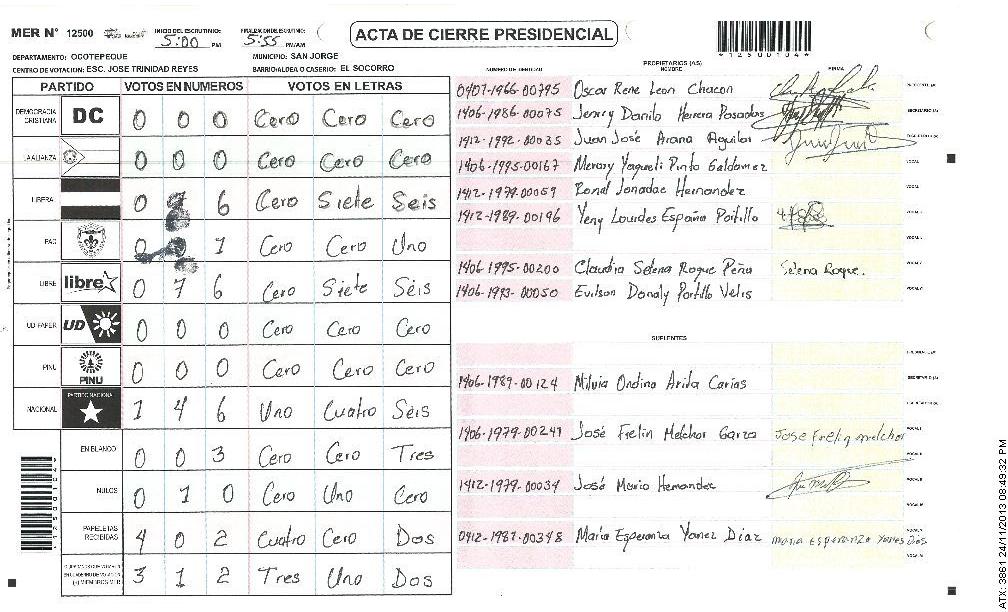 MER N° 12500 INICIO DEL ESCRUTINIO: 5:00 PM FINALIZACIÓN DE ESCRUTINIO: 5:55 PM/AM ACTA DE CIERRE PRESIDENCIAL
*1250014*
DEPARTAMENTO: OCOTEPEQUE MUNICIPIO: SAN JORGE
CENTRO DE VOTACION: ESC. JOSE TRINIDAD REYES BARRIO/ALDEA O CASERIO: EL SOCORRO
PARTIDO VOTOS EN NUMEROS VOTOS EN LETRAS
DEMOCRACIA CRISTIANA DC 0 0 0 Cero Cero Cero
LA ALIANZA 0 0 0 Cero Cero Cero
LIBERA 0 7 6 Cero Siete Seis
PAC 0 0 1 Cero Cero Uno
LIBRE libre 0 7 6 Cero Siete Séis
UD FAPER UD 0 0 0 Cero Cero Cero
PINU PINU 0 0 0 Cero Cero Cero
NACIONAL PARTIDO NACIONAL 1 4 6 Uno Cuatro Séis
EN BLANCO 0 0 3 Cero Cero Tres
NULOS 0 1 0 Cero Uno Cero
PAPELETAS RECIBIDAS 4 0 2 Cuatro Cero Dos
3 1 2 Tres Uno Dos
NUMERO DE IDENTIDAD PROPIETARIOS (AS) NOMBRE FIRMA
0401-1966-00795 Oscar Rene Leon Chacon
1406-1986-00075 Jenry Danilo Herrera Posadas SECRETARIO (A)
1412-1992-00035 Juan José Arana Aguilar
1406-1995-00167 Merary Yaqueli Pinto Galdamez VOCAL
1412-1979-00059 Ronal Jonadac Hernandez VOCAL
1412-1989-00196 Yeny Lourdes España Portillo VOCAL
1406-1995-00200 Claudia Selena Roque Peña Selena Roque. VOCAL
1406-1983-00050 Evilson Donaly Portillo Velis VOCAL
SUPLENTES
1406-1989-00124 Milvia Ondina Arita Carias SECRETARIO (A)
1406-1979-00241 José Frelin Melchor Garza Jose Frelin melchor VOCAL
1412-1979-00034 José Mario Hernandez VOCAL
0412-1987-00348 María Esperanza Yanez Díaz maria Esperanza Yanes Dias VOCAL
ATX: 3861 24/11/2013 08:49:32 PM